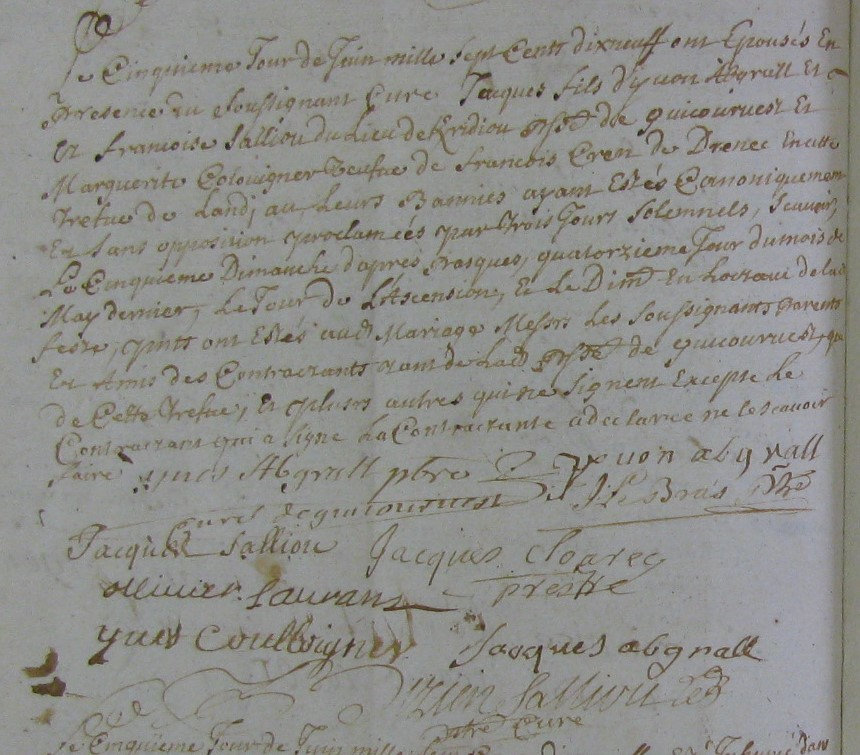 Le Cinquieme Jour de Juin mille sept Cents dixneuff ont Epousés En
presence du Soussignant Curé Jacques fils d'yvon Abgrall Et
Et francoise Salliou du Lieu de Kridiou de guicourvest Et
Marguerite Coloigner Veufue de francois Cren de Drenec En cette
Trefue de Land, au Leurs Bannies ayant Estés Canoniquement
Et Sans opposition proclamées par trois Jours Solemnels, Scavoir,
Le Cinquieme Dimanche d'apres pasques, quatorzieme Jour du mois de
May dernier, Le Jour de L'Ascension, Et Le Dim En Loctave de lad
feste, pnts ont Estés aud Mariage Messrs Les Soussignants parents
Et Amis des Contractants tant de Lad de guicourvest, que
de Cette Trefue, Et plusrs autres qui ne Signent Excepté Le
Contractant qui a signe La Contractante a declaree ne le scavoir
faire yves Abgrall pbre yvon abgrall
curé de guicourvest J Le Bras ptre
Jacques Salliou Jacques Cloarec
ollivier Laurans prestre
yves Coulloigner Jacques abgrall
Salliou
ptre Curé
Le Cinquieme Jour de Juin mille Sept